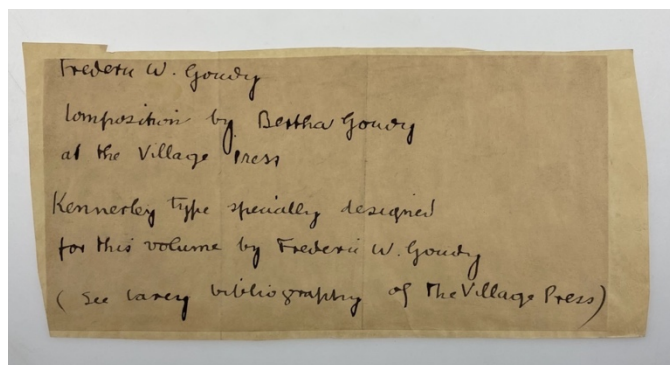 Frederic W. Goudy
Composition by Bertha Goudy
at the Village Press
Kennerley type specially designed
for this volume by Frederic W. Goudy
(See Carey bibliography of the Village Press)